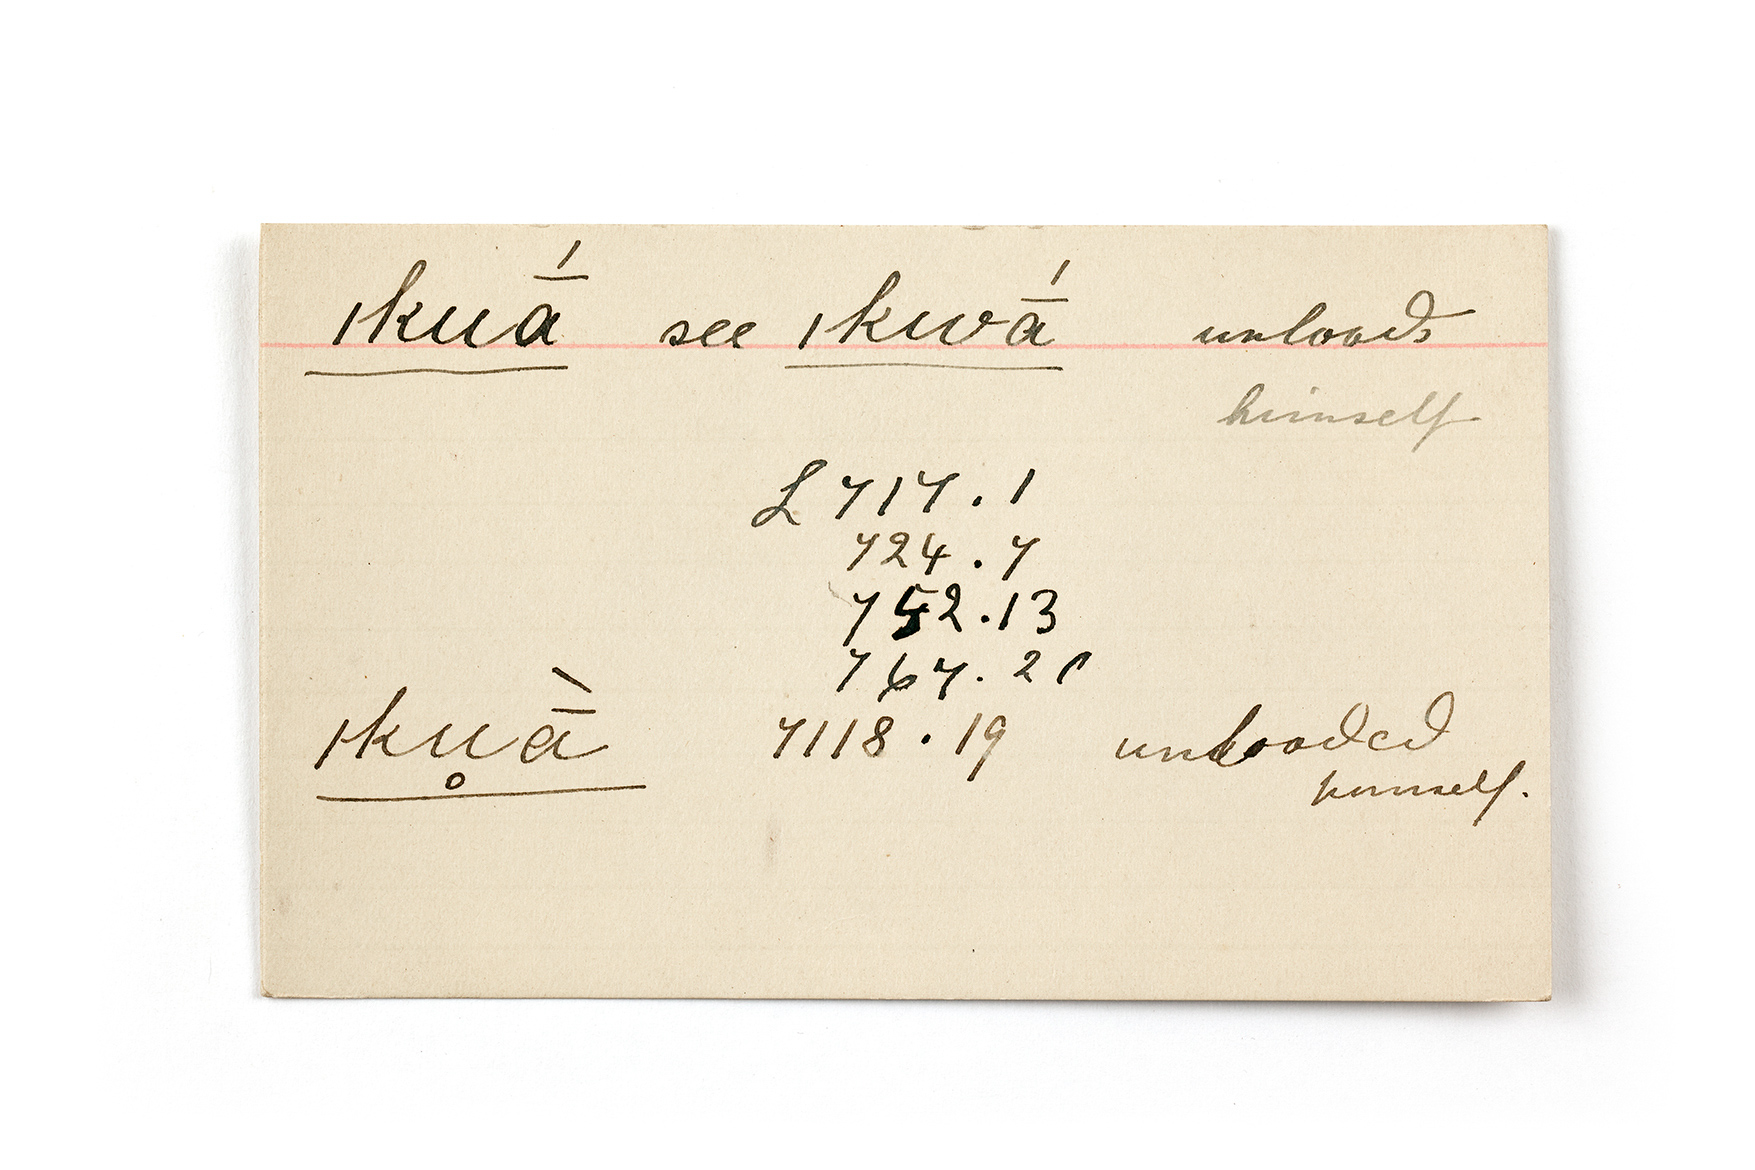 ıkuā́ see ıkwā́ unloads
himself
L 717.1
724.7
752.13
767.21
ıku̥ā̀ 7118.19 unloaded
himself.